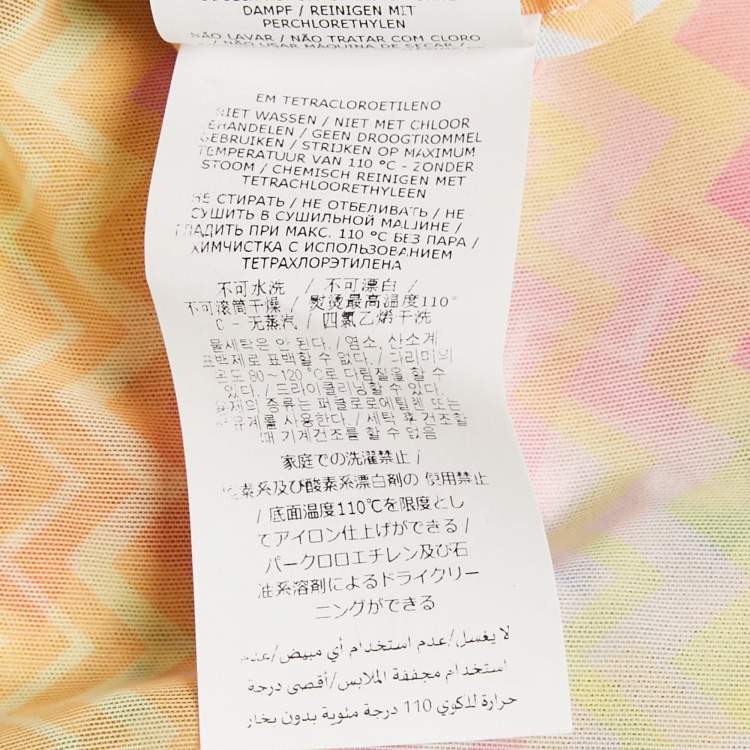 DAMPF / REINIGEN MIT
PERCHLORETHYLEN
NÃO LAVAR / NÃO TRATAR COM CLORO
/ NÃO USAR MÁQUINA DE SECAR /
EM TETRACLOROETILENO
NIET WASSEN / NIET MET CHLOOR
BEHANDELEN / GEEN DROOGTROMMEL
GEBRUIKEN / STRIJKEN OP MAXIMUM
TEMPERATUUR VAN 110 °C - ZONDER
STOOM / CHEMISCH REINIGEN MET
TETRACHLOORETHYLEEN
НЕ СТИРАТЬ / НЕ ОТБЕЛИВАТЬ / НЕ
СУШИТЬ В СУШИЛЬНОЙ МАШИНЕ /
ГЛАДИТЬ ПРИ МАКС. 110 °C БЕЗ ПАРА /
ХИМЧИСТКА С ИСПОЛЬЗОВАНИЕМ
ТЕТРАХЛОРЭТИЛЕНА
不可水洗 / 不可漂白 /
不可滚筒干燥 / 熨烫最高温度110°
C - 无蒸汽 / 四氯乙烯干洗
물세탁은 안 된다. / 염소, 산소계
표백제로 표백할 수 없다. / 다리미의
온도 80~120°C로 다림질을 할 수
있다. / 드라이클리닝할 수 있다.
용제의 종류는 퍼클로로에틸렌 또는
석유계를 사용한다. / 세탁 후 건조할
때 기계건조를 할 수 없음
家庭での洗濯禁止 /
塩素系及び酸素系漂白剤の 使用禁止
/ 底面温度110℃を限度とし
てアイロン仕上げができる /
パークロロエチレン及び石
油系溶剤によるドライクリー
ニングができる
لا يغسل/عدم استخدام أي مبيض/عدم
استخدام مجففة الملابس/أقصى درجة
حرارة للكوي 110 درجة مئوية بدون بخار